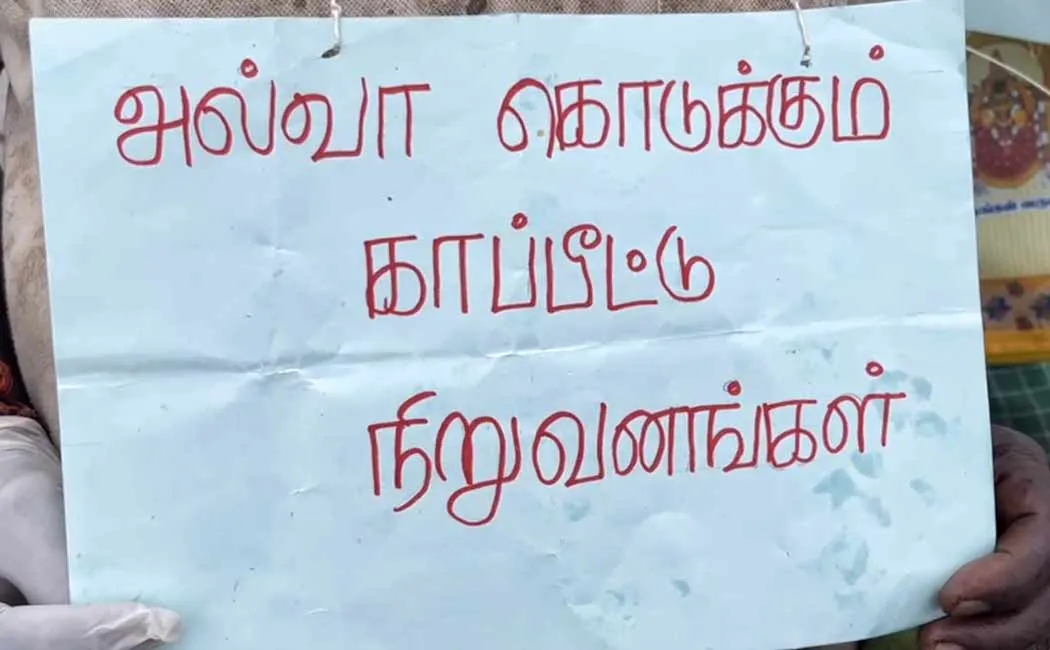 அல்வா கொடுக்கும்
காப்பீட்டு
நிறுவனங்கள்